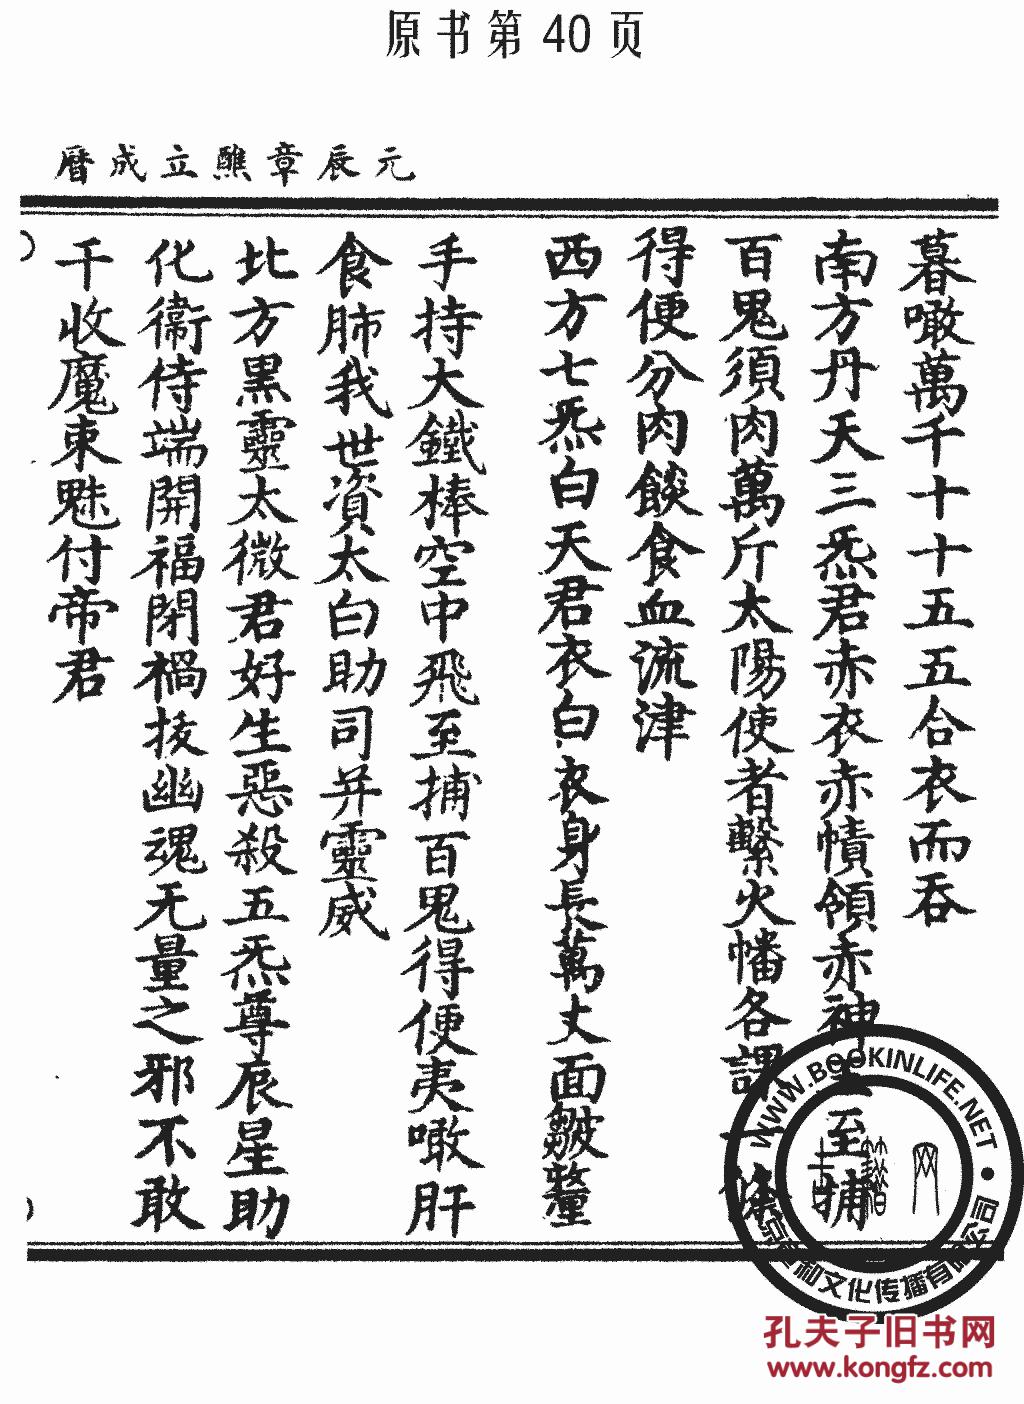 原书第 40 页
元辰章醮立成曆
暮噉萬千十十五五合衣而吞
南方丹天三炁君赤衣赤幘領赤神至捕
百鬼須肉萬斤太陽使者繫火幡各謂一條
得便分肉餤食血流津
西方七炁白天君衣白衣身長萬丈面皺
手持大鐵棒空中飛至捕百鬼得便夷噉肝
食肺我世資太白助司并靈威
北方黑靈太微君好生惡殺五炁尊辰星助
化衛侍端開福閉禍拔幽魂无量之邪不敢
干收魔束魅付帝君
WWW.BOOKINLIFE.NET
文化传播有限公司
孔夫子旧书网
www.kongfz.com